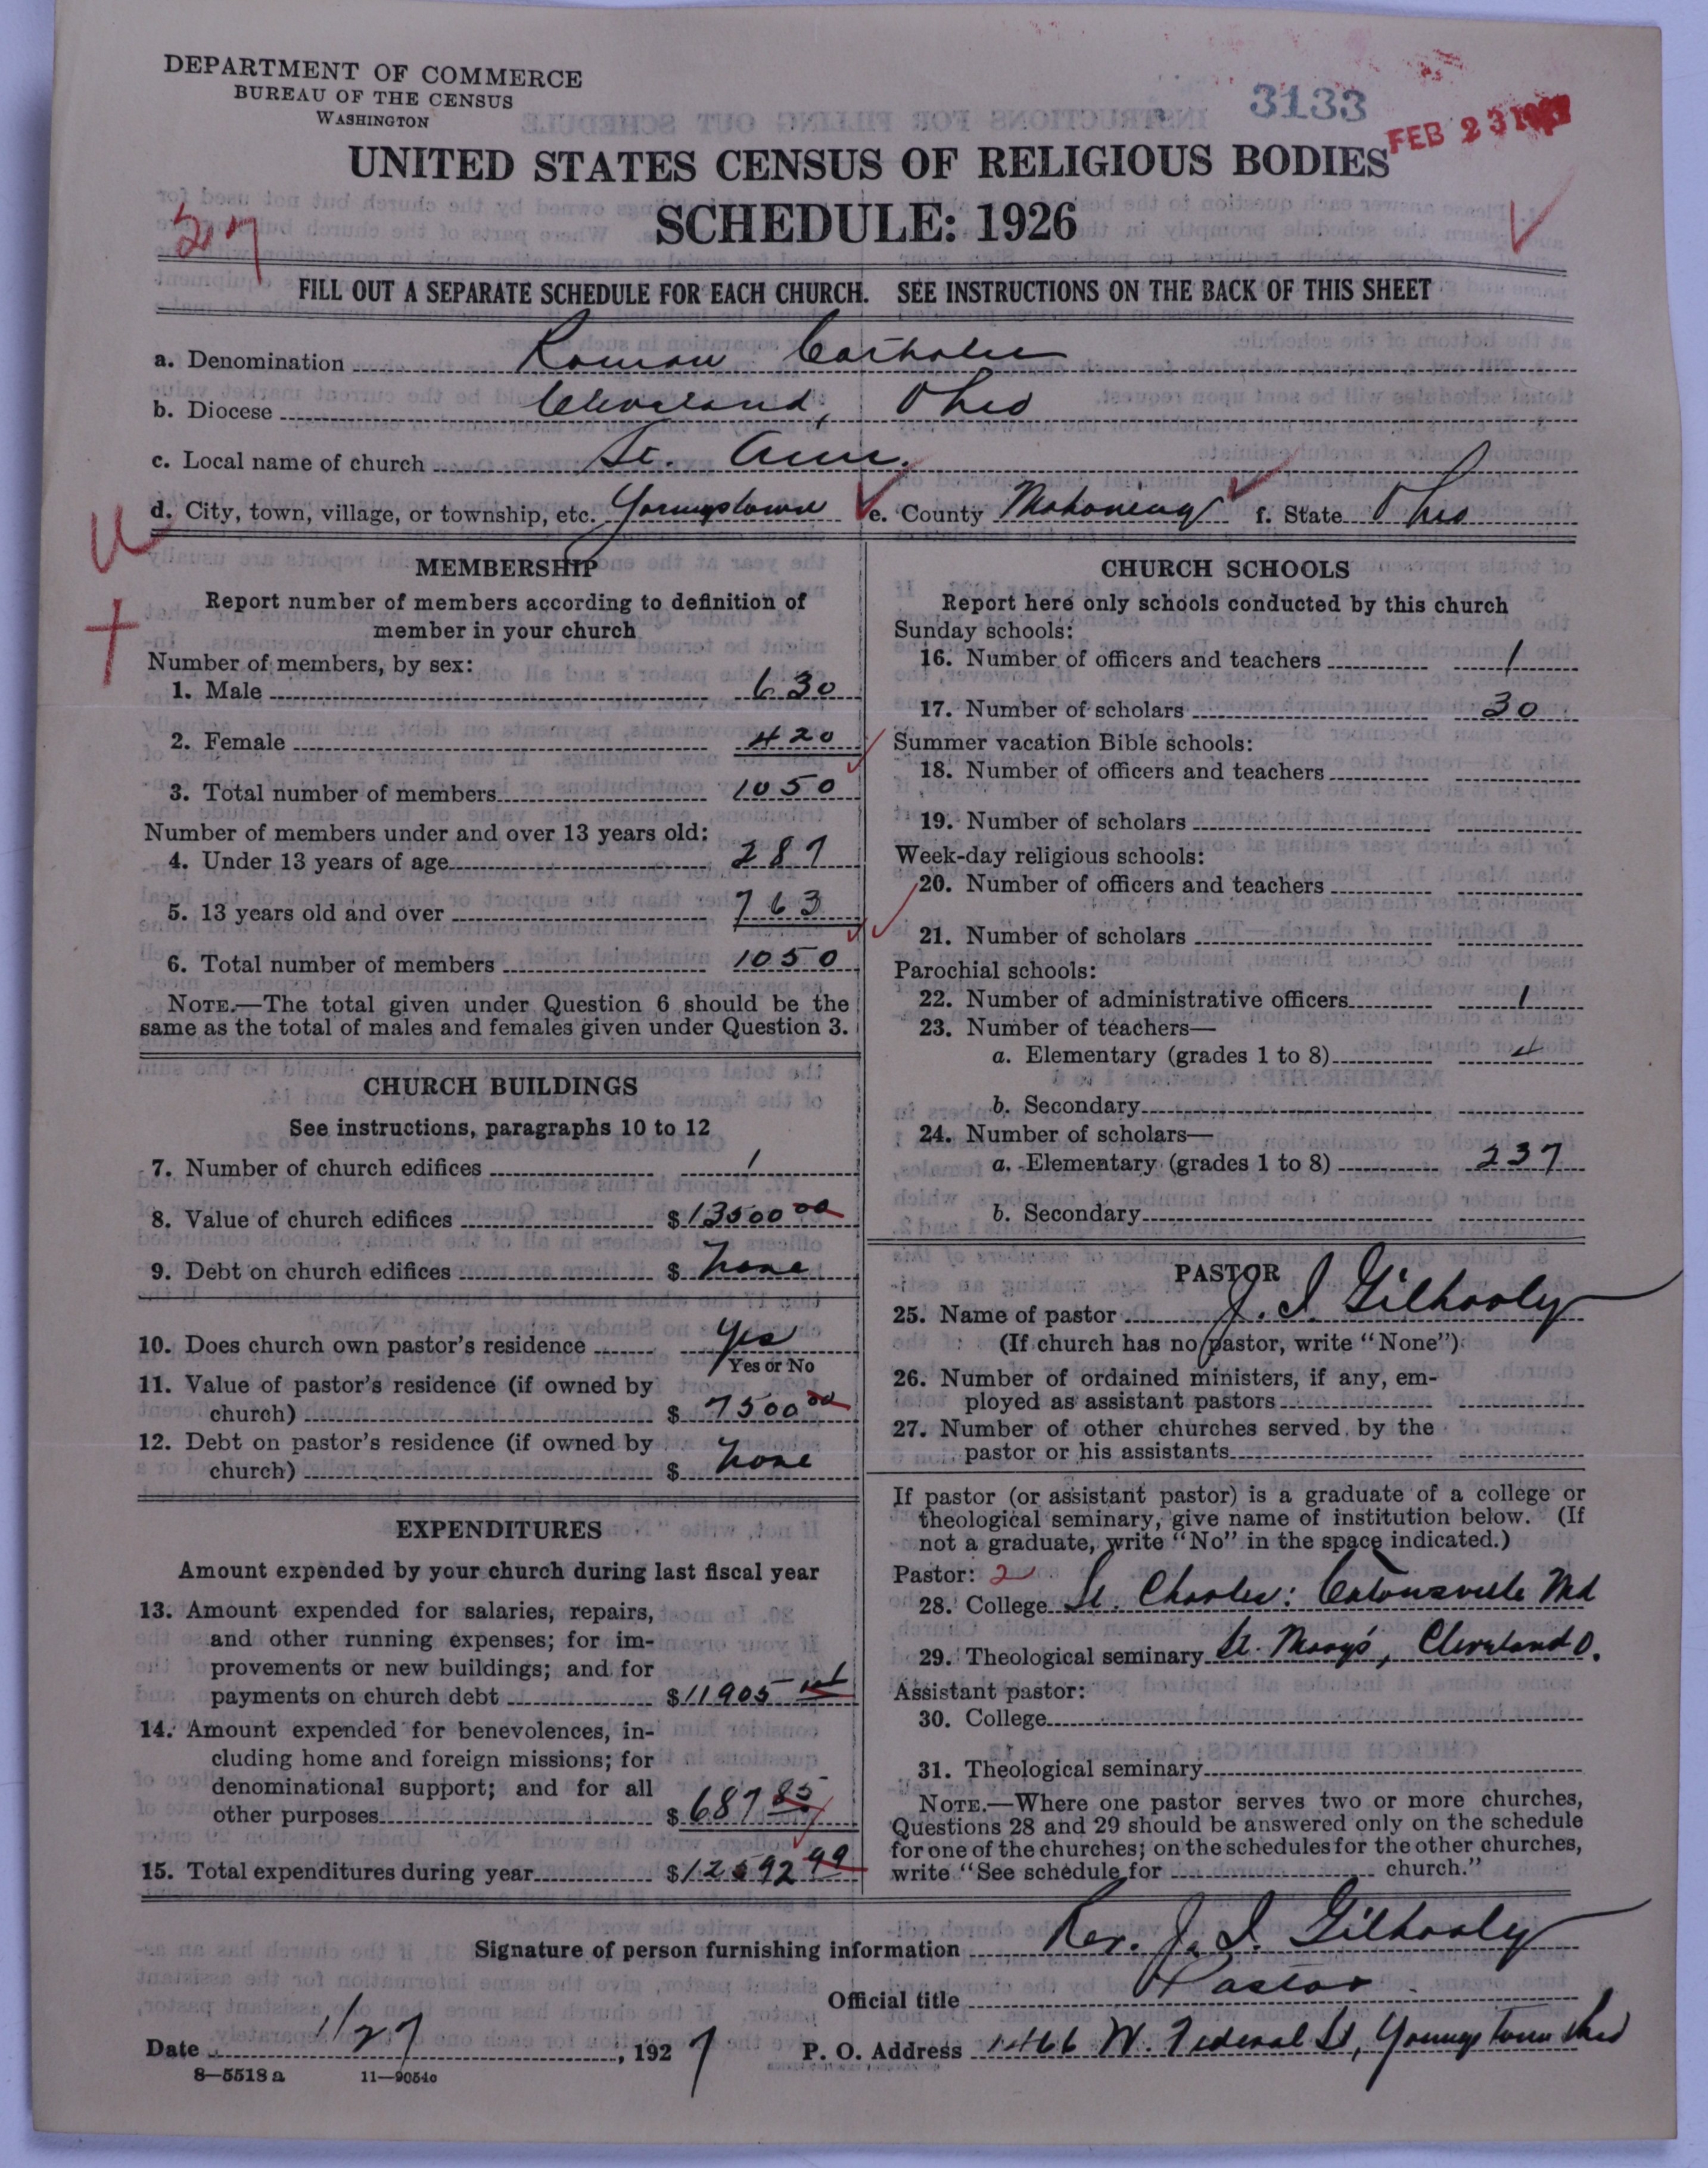 DEPARTMENT OF COMMERCE
BUREAU OF THE CENSUS
WASHINGTON
3133
FEB 23 1927
UNITED STATES CENSUS OF RELIGIOUS BODIES
SCHEDULE: 1926
FILL OUT A SEPARATE SCHEDULE FOR EACH CHURCH. SEE INSTRUCTIONS ON THE BACK OF THIS SHEET
a. Denomination Roman Catholic
b. Diocese Cleveland, Ohio
c. Local name of church St. Ann.
d. City, town, village, or township, etc. Youngstown e. County Mahoning f. State Ohio
MEMBERSHIP
Report number of members according to definition of
member in your church
Number of members, by sex:
1. Male 630
2. Female 420
3. Total number of members 1050
Number of members under and over 13 years old:
4. Under 13 years of age 287
5. 13 years old and over 763
6. Total number of members 1050
NOTE.—The total given under Question 6 should be the
same as the total of males and females given under Question 3.
CHURCH BUILDINGS
See instructions, paragraphs 10 to 12
7. Number of church edifices 1
8. Value of church edifices $13500 00
9. Debt on church edifices $ None
10. Does church own pastor's residence Yes
Yes or No
11. Value of pastor's residence (if owned by
church) $ 7500 00
12. Debt on pastor's residence (if owned by
church) $ None
EXPENDITURES
Amount expended by your church during last fiscal year
13. Amount expended for salaries, repairs,
and other running expenses; for im-
provements or new buildings; and for
payments on church debt $11905
14. Amount expended for benevolences, in-
cluding home and foreign missions; for
denominational support; and for all
other purposes $ 687 85
15. Total expenditures during year $12592 99
CHURCH SCHOOLS
Report here only schools conducted by this church
Sunday schools:
16. Number of officers and teachers 1
17. Number of scholars 30
Summer vacation Bible schools:
18. Number of officers and teachers
19. Number of scholars
Week-day religious schools:
20. Number of officers and teachers
21. Number of scholars
Parochial schools:
22. Number of administrative officers 1
23. Number of teachers—
a. Elementary (grades 1 to 8) 4
b. Secondary
24. Number of scholars—
a. Elementary (grades 1 to 8) 237
b. Secondary
PASTOR
25. Name of pastor J. I. Gilhooly
(If church has no pastor, write "None")
26. Number of ordained ministers, if any, em-
ployed as assistant pastors
27. Number of other churches served by the
pastor or his assistants
If pastor (or assistant pastor) is a graduate of a college or
theological seminary, give name of institution below. (If
not a graduate, write "No" in the space indicated.)
Pastor: 2
28. College St. Charles: Catonsville Md
29. Theological seminary St. Mary's, Cleveland O.
Assistant pastor:
30. College
31. Theological seminary
NOTE.—Where one pastor serves two or more churches,
Questions 28 and 29 should be answered only on the schedule
for one of the churches; on the schedules for the other churches,
write "See schedule for church."
Signature of person furnishing information Rev. J. I. Gilhooly
Official title Pastor
Date 1/27, 1927 P. O. Address 1466 W. Federal St, Youngstown Ohio
8—5518 a 11—9054o